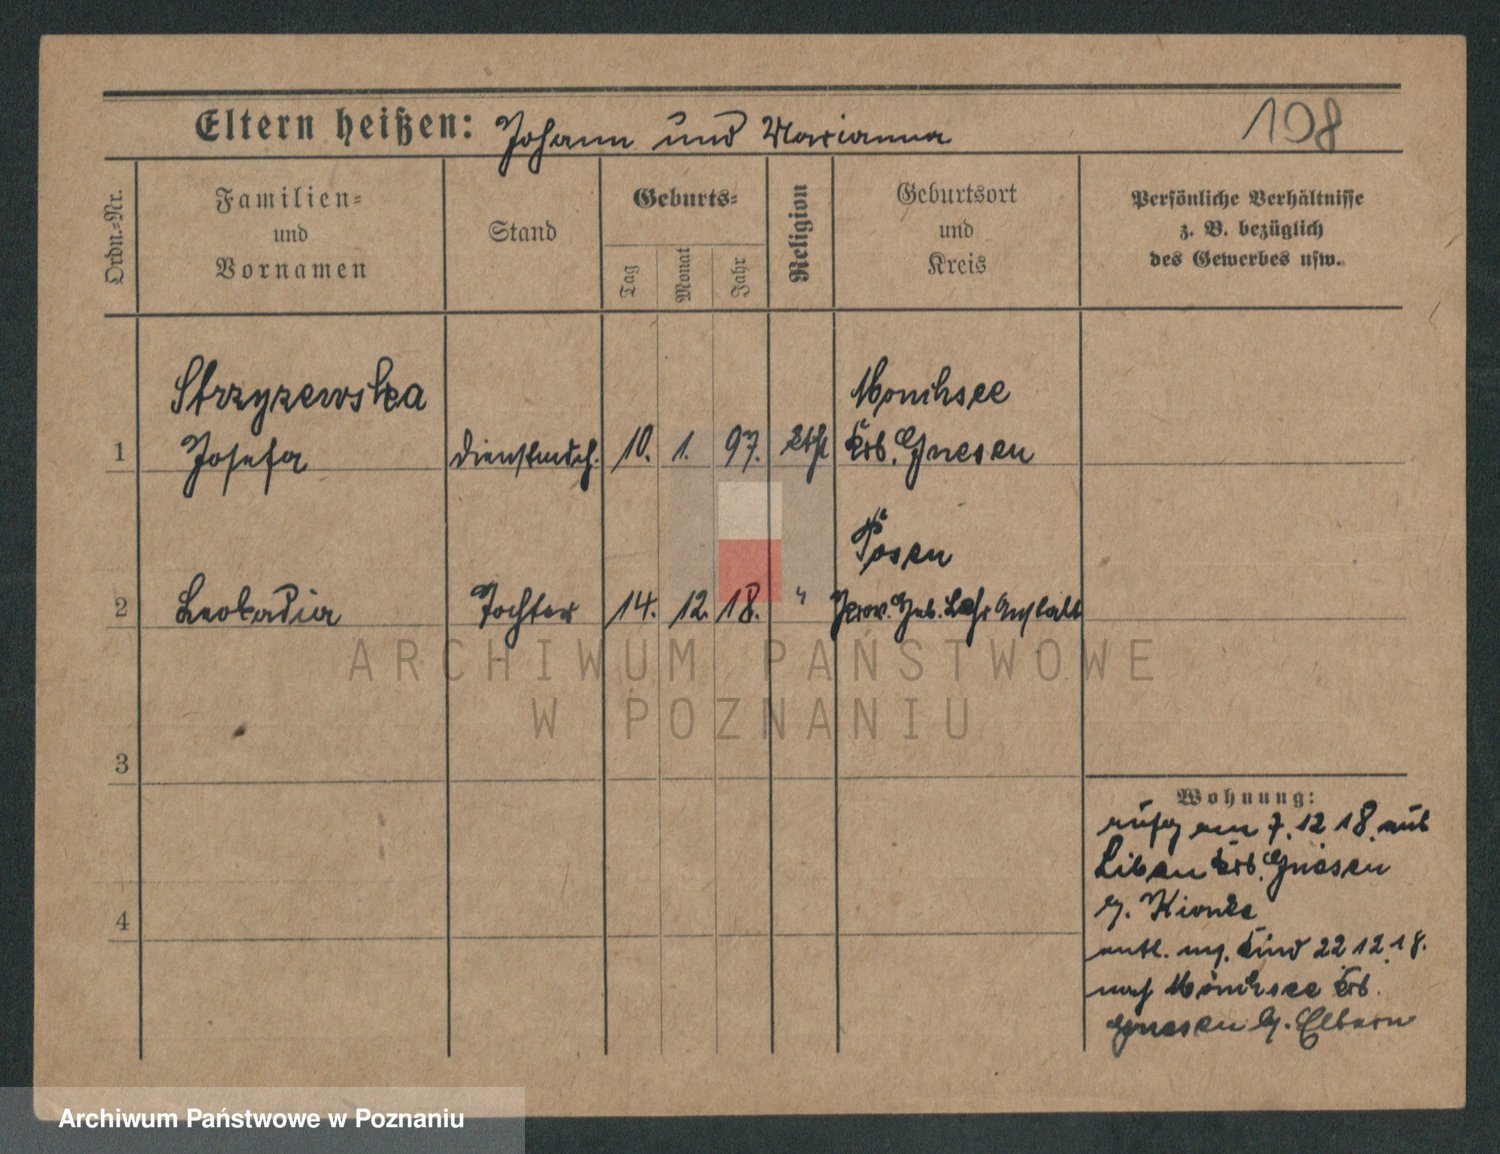 Eltern heißen: Johann und Marianna
108
Ordn.-Nr.
Familien- und Vornamen
Stand
Geburts-
Tag
Monat
Jahr
Religion
Geburtsort und Kreis
Persönliche Verhältnisse
z. B. bezüglich
des Gewerbes usw.
Strzyzewska
Mönchsee
1 Josefa Dienstmdch. 10. 1. 97. kth Krs. Gnesen
Posen
2 Leokadia Tochter 14. 12. 18. " Prov. Heb. Lehr Anstalt
3
4
Wohnung:
zufg am 7.12 18. aus
Libau Krs. Gnesen
z.
entl. m. Kind 22 12.18.
nach Mönchsee Krs.
Gnesen z. Eltern
ARCHIWUM PAŃSTWOWE
W POZNANIU
Archiwum Państwowe w Poznaniu